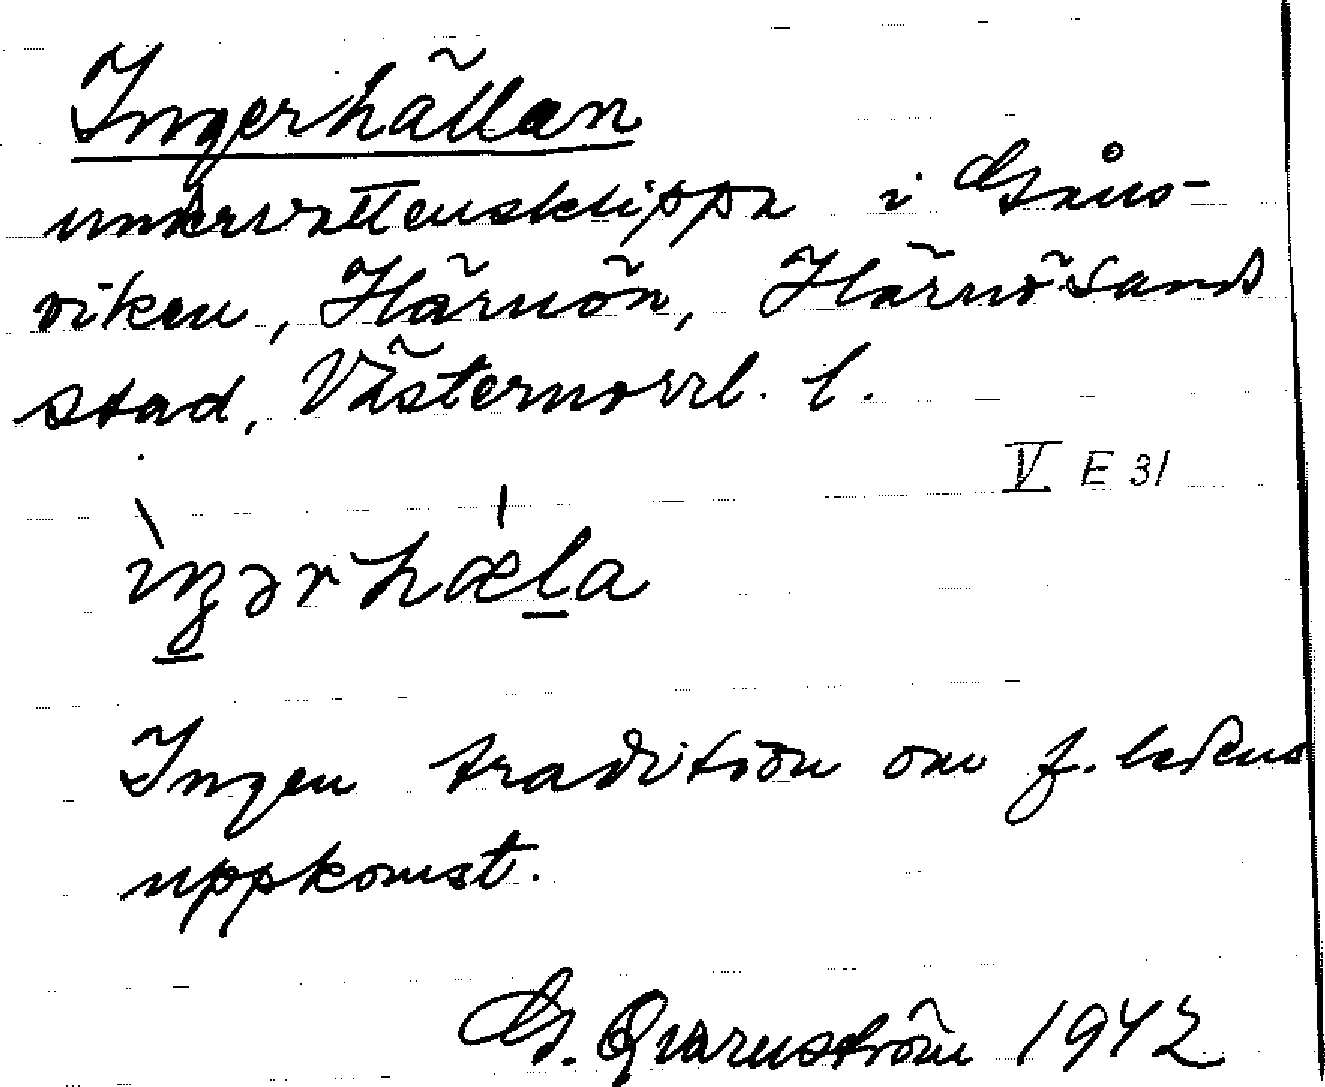 Ingerhällan
undervattensklippa i Gåns-
viken, Härnön, Härnösands
stad, Västernorrl. l.
V E 31
ìŋərhæla
Ingen tradition om f. ledens
uppkomst.
G. Qvarnström 1942